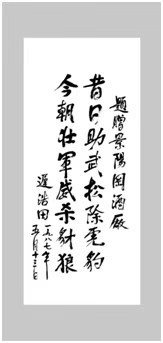 題贈景陽岡酒廠
昔日助武松除虎豹
今朝壯軍威杀豺狼
遲浩田
一九八七年
五月十三日